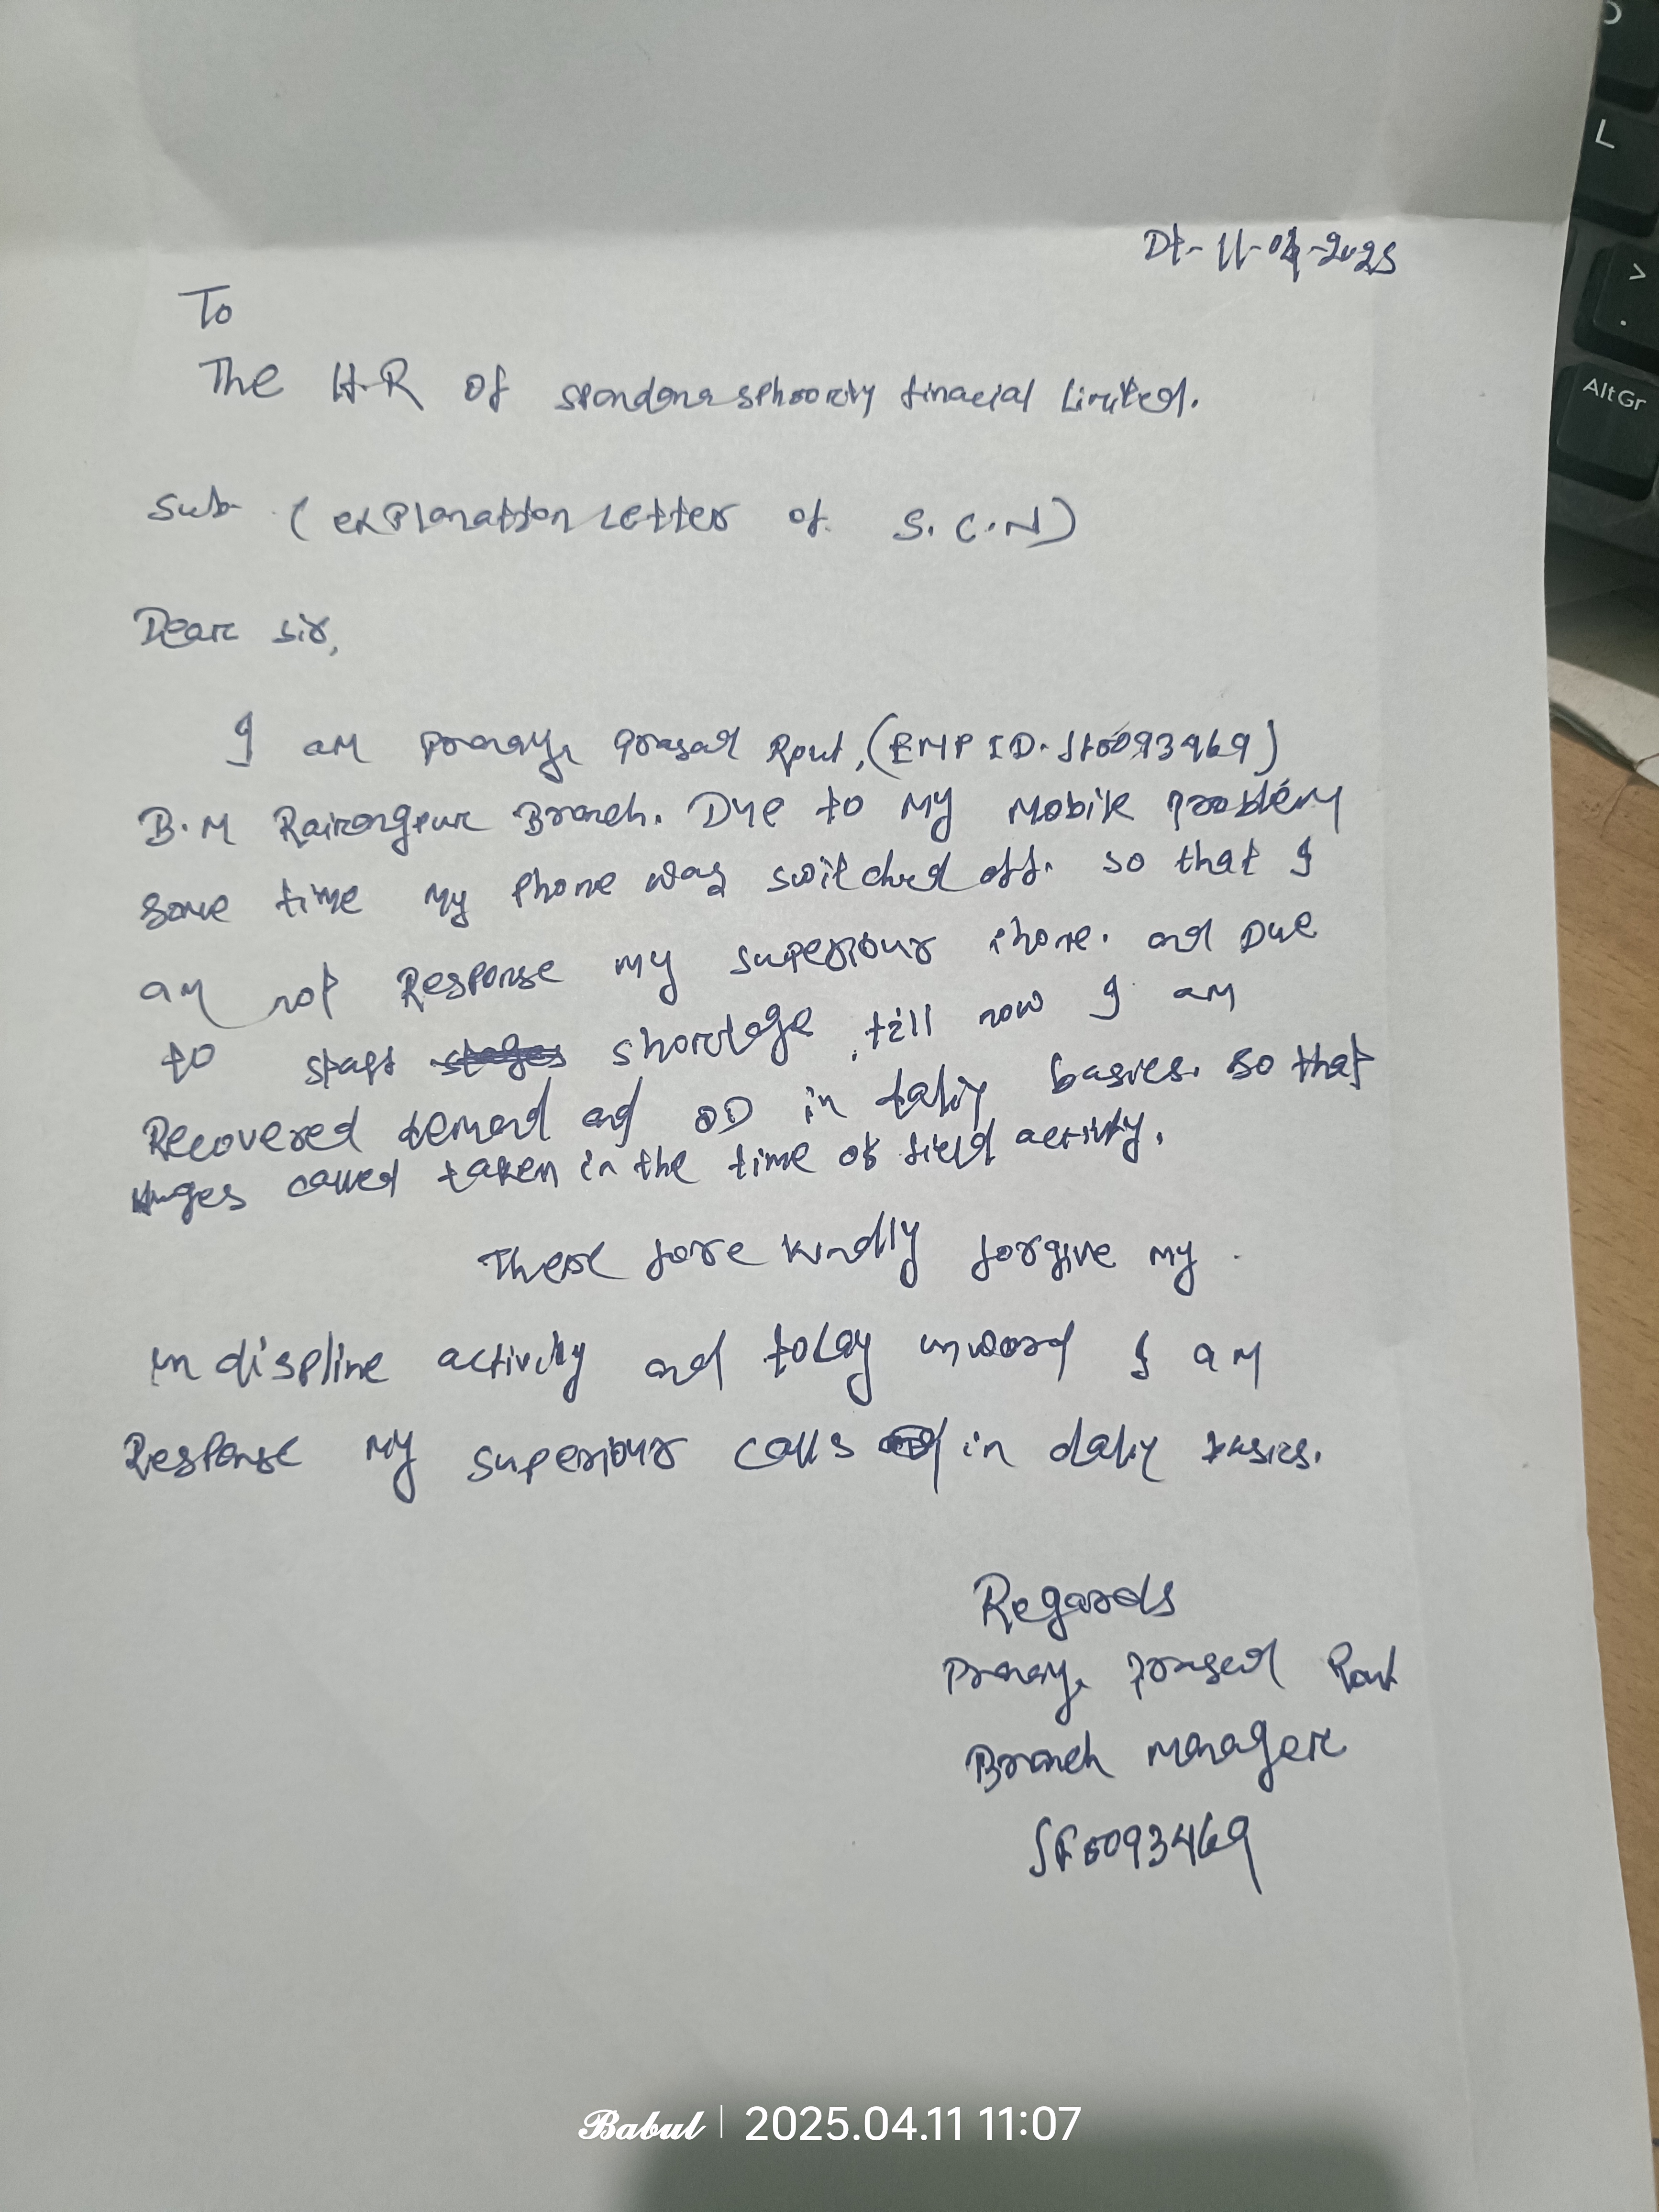 Dt- 11-04-2025
To
The H.R of spandana sphoority finacial Limited.
Sub- (explanation Letter of S.C.N)
Dear sir,
I am Pranaya Prasad Rout, (EMP ID- SF0093469)
B.M Rairangpur Branch. Due to my mobile problem
some time my phone was switched off. so that I
am not Response my superiour phone. and Due
to staff shortage, till now I am
Recovered demand and OD in daily basies. so that
called taken in the time of field activity.
There fore kindly forgive my
in displine activity and today onword I am
Response my superiour calls in daily basies.
Regards
Pranaya Prasad Rout
Branch manager
SF0093469
Babul | 2025.04.11 11:07
O
L
>
.
AltGr